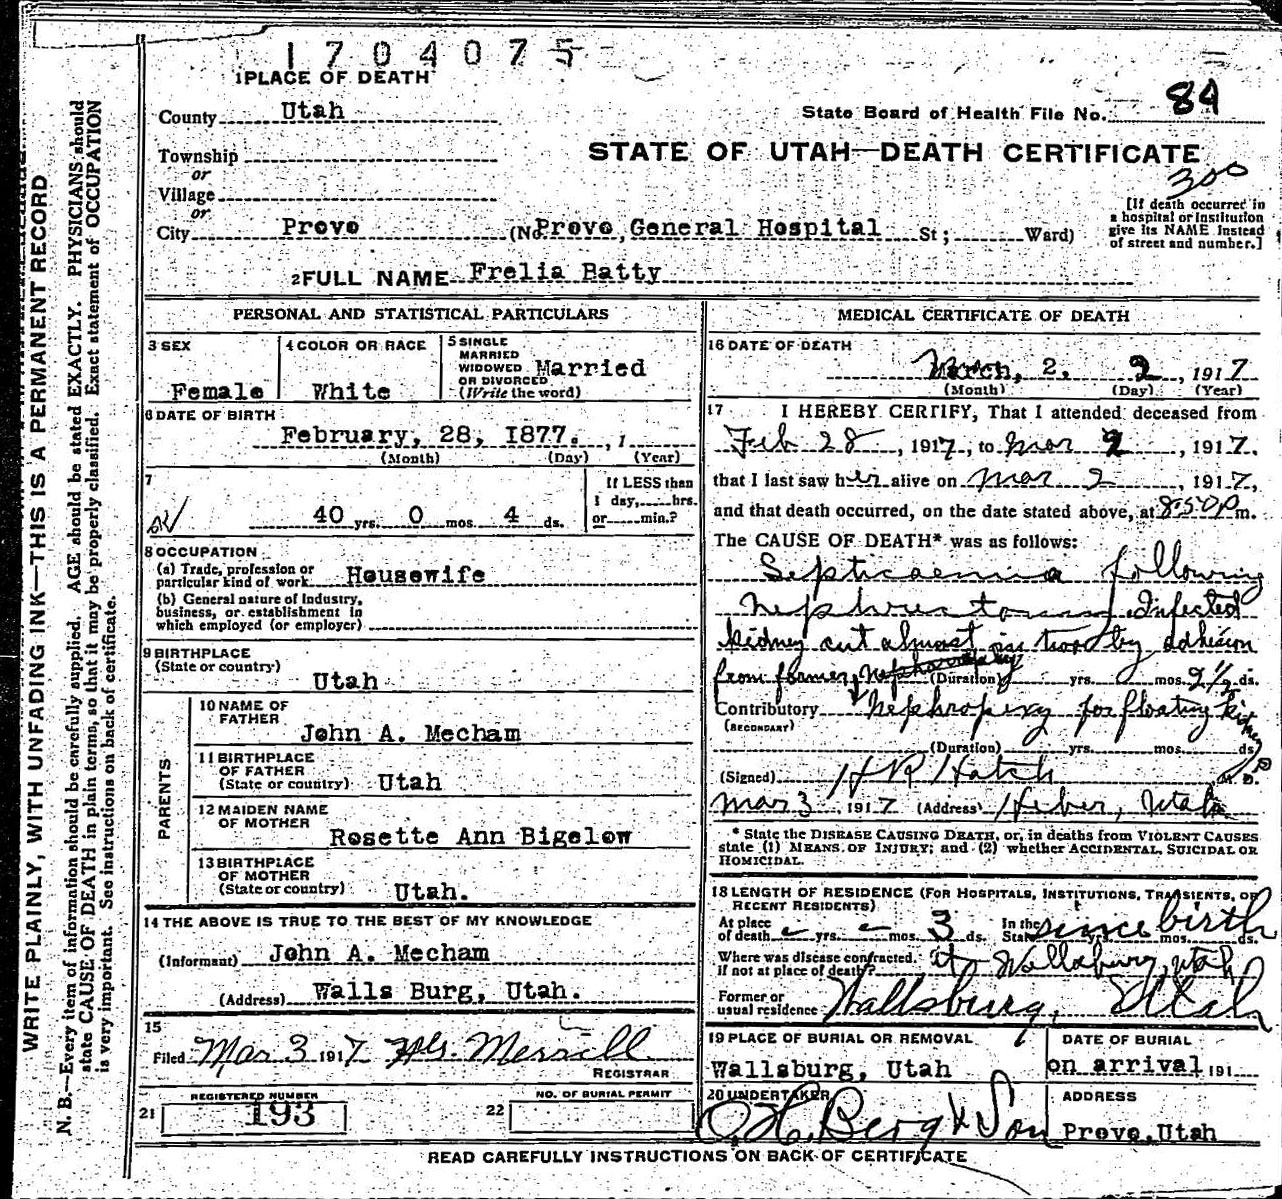 1704075
1 PLACE OF DEATH
County Utah
State Board of Health File No. 84
Township
or
Village
or
STATE OF UTAH—DEATH CERTIFICATE
300
[If death occurred in
a hospital or institution
give its NAME instead
of street and number.]
City Provo (No. Provo, General Hospital St; Ward)
2 FULL NAME Frelia Batty
PERSONAL AND STATISTICAL PARTICULARS
3 SEX
Female
4 COLOR OR RACE
White
5 SINGLE
MARRIED
WIDOWED
OR DIVORCED
(Write the word)
Married
6 DATE OF BIRTH
February, 28, 1877. , 1
(Month) (Day) (Year)
7
40 yrs. 0 mos. 4 ds.
If LESS than
1 day, hrs.
or min.?
8 OCCUPATION
(a) Trade, profession or
particular kind of work Housewife
(b) General nature of Industry,
business, or establishment in
which employed (or employer)
9 BIRTHPLACE
(State or country)
Utah
PARENTS
10 NAME OF
FATHER
John A. Mecham
11 BIRTHPLACE
OF FATHER
(State or country) Utah
12 MAIDEN NAME
OF MOTHER
Rosette Ann Bigelow
13 BIRTHPLACE
OF MOTHER
(State or country) Utah.
14 THE ABOVE IS TRUE TO THE BEST OF MY KNOWLEDGE
(Informant) John A. Mecham
(Address) Walls Burg, Utah.
15
Filed Mar 3 1917 Merrill
REGISTRAR
21 REGISTERED NUMBER
193
22 NO. OF BURIAL PERMIT
MEDICAL CERTIFICATE OF DEATH
16 DATE OF DEATH
March, 2, 2, 1917
(Month) (Day) (Year)
17 I HEREBY CERTIFY, That I attended deceased from
Feb 28, 1917, to Mar 2, 1917.
that I last saw her alive on Mar 2, 1917,
and that death occurred, on the date stated above, at 8:50 P m.
The CAUSE OF DEATH* was as follows:
Septicaemia following
Infected
kidney cut almost in two by adhesion
from former (Duration) yrs. mos. 2 1/2 ds.
Contributory Nephropexy for floating kidney
(SECONDARY)
(Duration) yrs. mos. ds.
(Signed) H R Hatch M. D.
Mar 3 1917 (Address) Heber, Utah
* State the DISEASE CAUSING DEATH, or, in deaths from VIOLENT CAUSES
state (1) MEANS OF INJURY; and (2) whether ACCIDENTAL, SUICIDAL OR
HOMICIDAL.
18 LENGTH OF RESIDENCE (FOR HOSPITALS, INSTITUTIONS, TRANSIENTS, OR
RECENT RESIDENTS)
At place
of death - yrs. - mos. 3 ds.
In the
State since birth yrs. mos. ds.
Where was disease contracted,
if not at place of death? at Wallsburg, Utah
Former or
usual residence Wallsburg, Utah
19 PLACE OF BURIAL OR REMOVAL
Wallsburg, Utah
DATE OF BURIAL
on arrival, 191
20 UNDERTAKER
O. H. Berg & Son
ADDRESS
Provo, Utah
READ CAREFULLY INSTRUCTIONS ON BACK OF CERTIFICATE
WRITE PLAINLY, WITH UNFADING INK—THIS IS A PERMANENT RECORD
N. B.—Every item of information should be carefully supplied. AGE should be stated EXACTLY. PHYSICIANS should
state CAUSE OF DEATH in plain terms, so that it may be properly classified. Exact statement of OCCUPATION
is very important. See instructions on back of certificate.